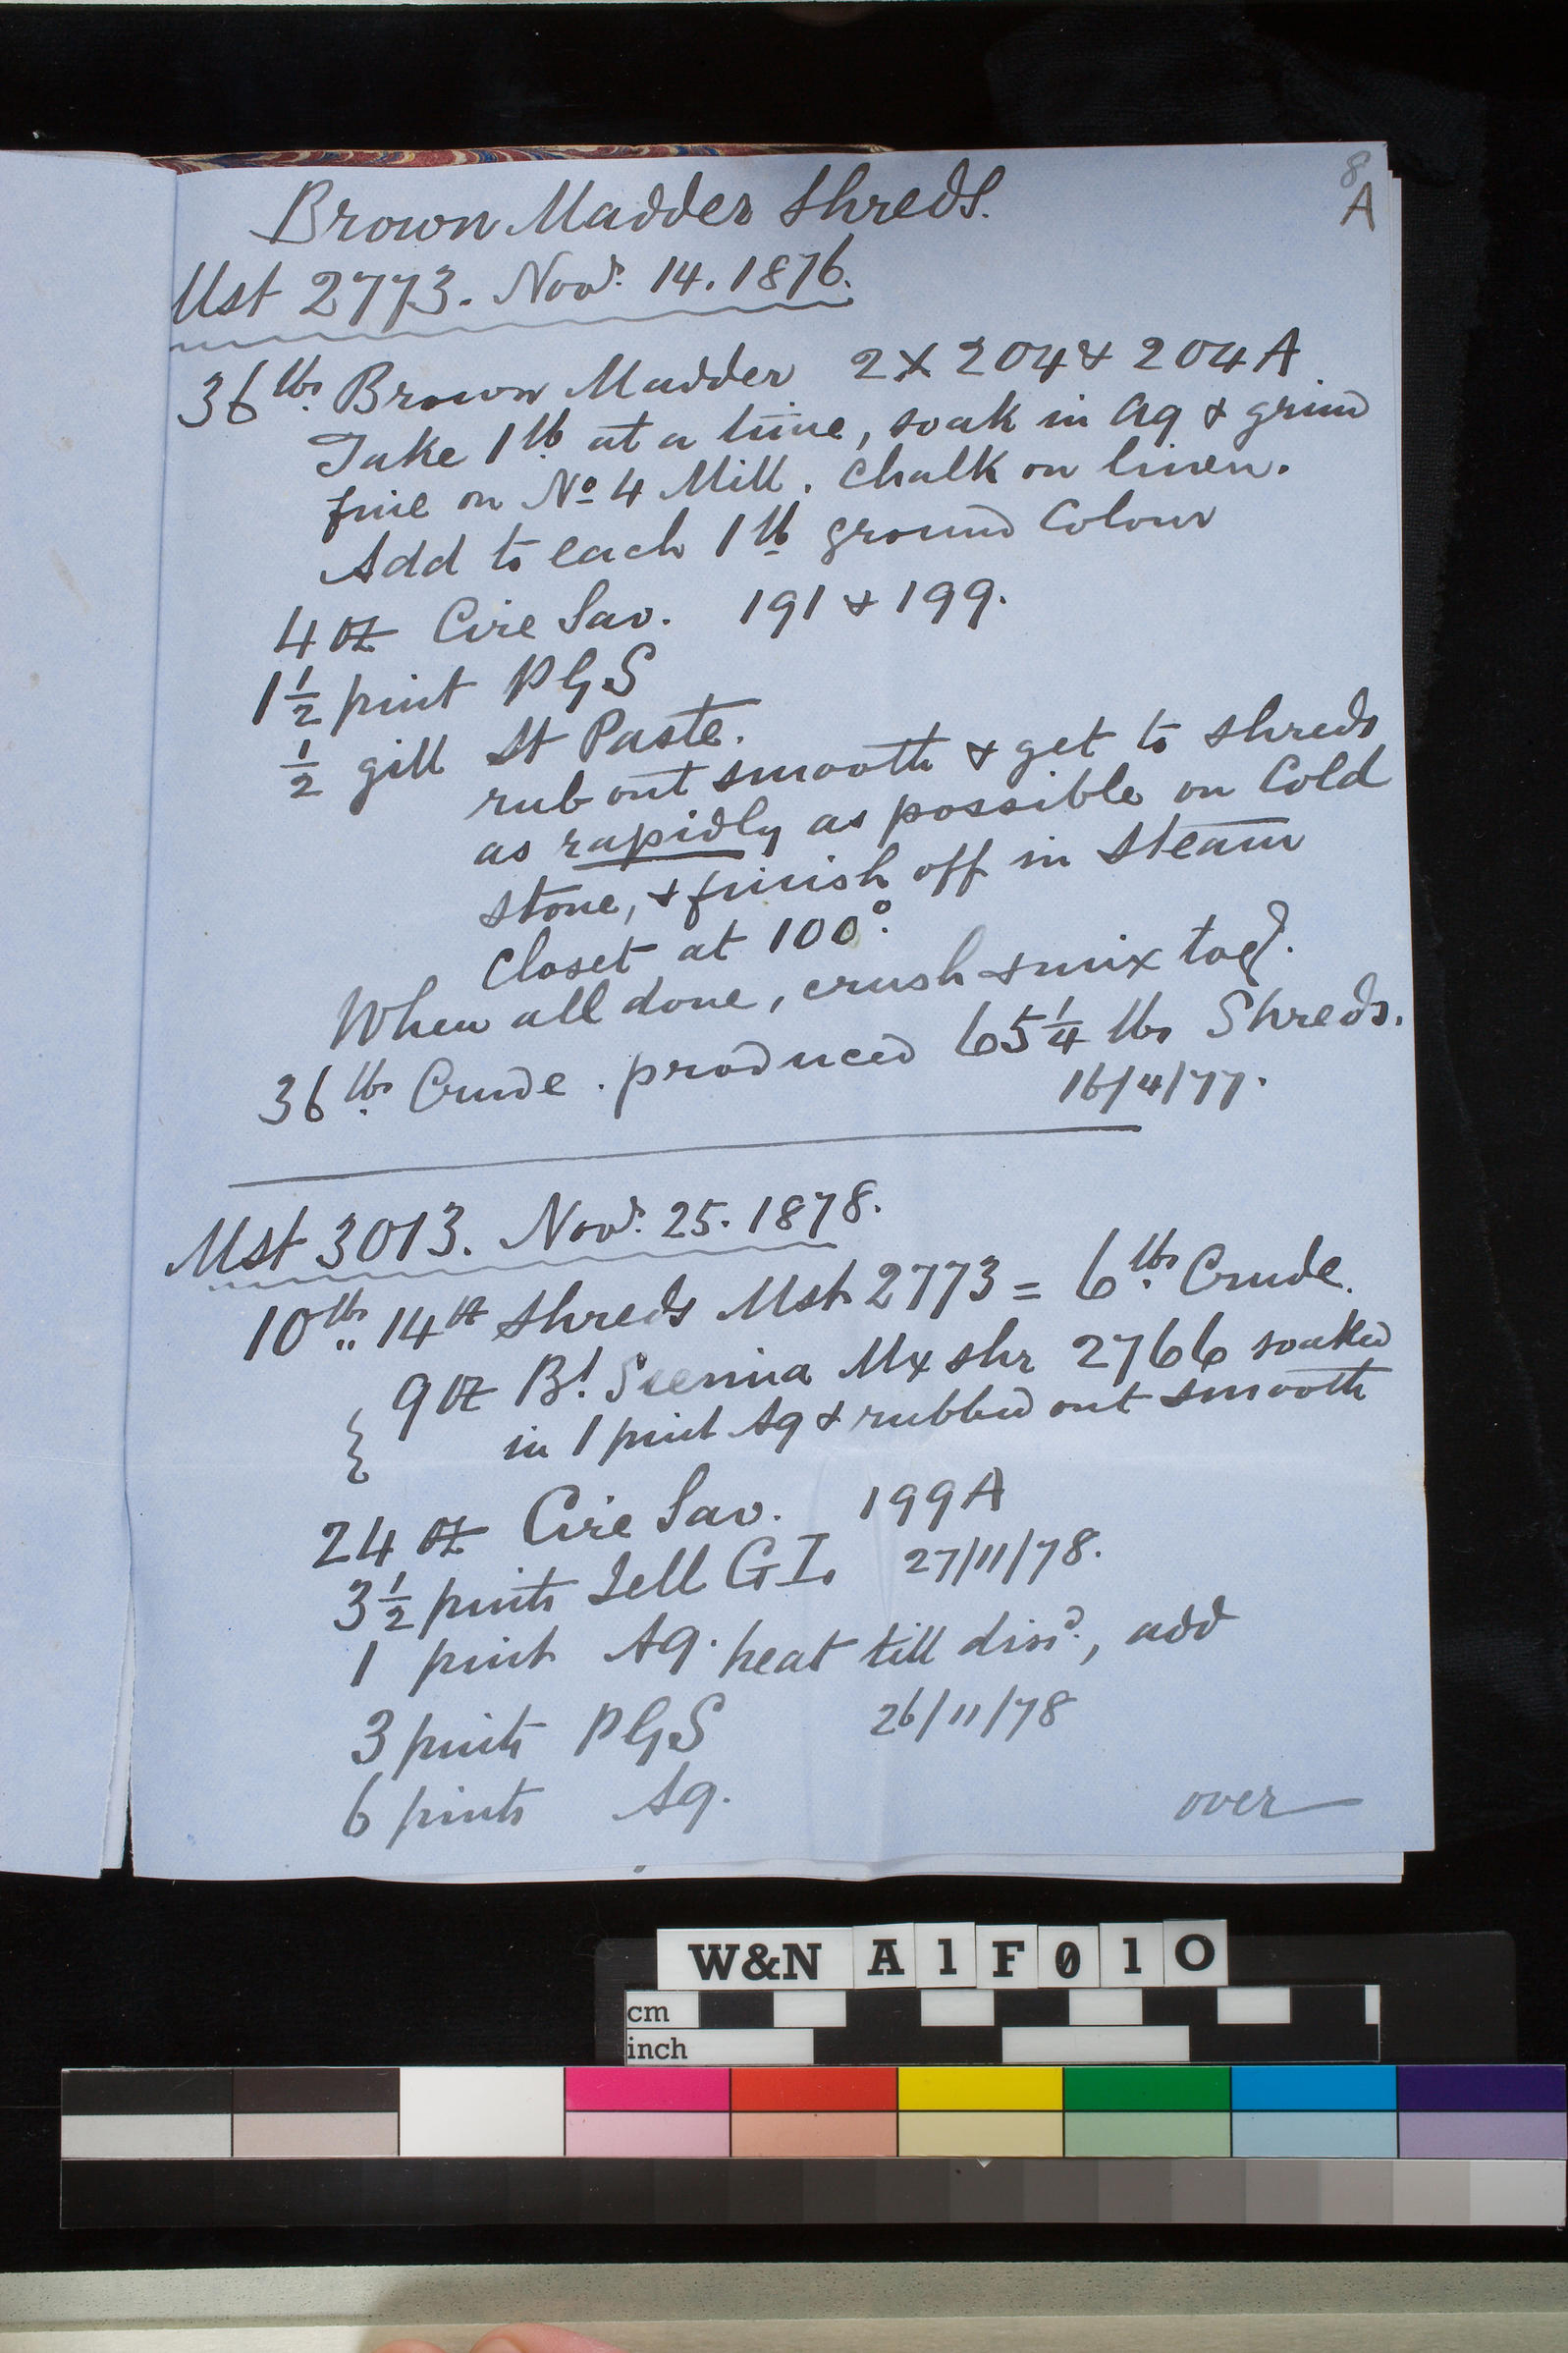 8
A
Brown Madder Shreds.
Mst 2773. Novr. 14. 1876.
36 lbs. Brown Madder 2X 204 & 204A
Take 1 lb at a time, soak in Aq & grind
fine on No 4 Mill. Chalk on linen.
Add to each 1 lb ground Colour
4 oz Cire Sav. 191 & 199.
1 1/2 pint PGS
1/2 gill St Paste.
rub out smooth & get to shreds
as rapidly as possible on Cold
Stone, & finish off in Steam
Closet at 100°.
When all done, crush & mix togr.
36 lbs. Crude. produced 65 1/4 lbs Shreds.
16/4/77.
Mst 3013. Novr. 25. 1878.
10 lbs.. 14 oz Shreds Mst 2773 = 6 lbs. Crude.
{ 9 oz Bt. Sienna Mx shr 2766 soaked
in 1 pint Aq & rubbed out smooth
24 oz Cire Sav. 199A
3 1/2 pints Jell GI. 27/11/78.
1 pint Aq. heat till disd., add
3 pints PGS 26/11/78
6 pints Aq.
over
W&N A1F010
cm
inch